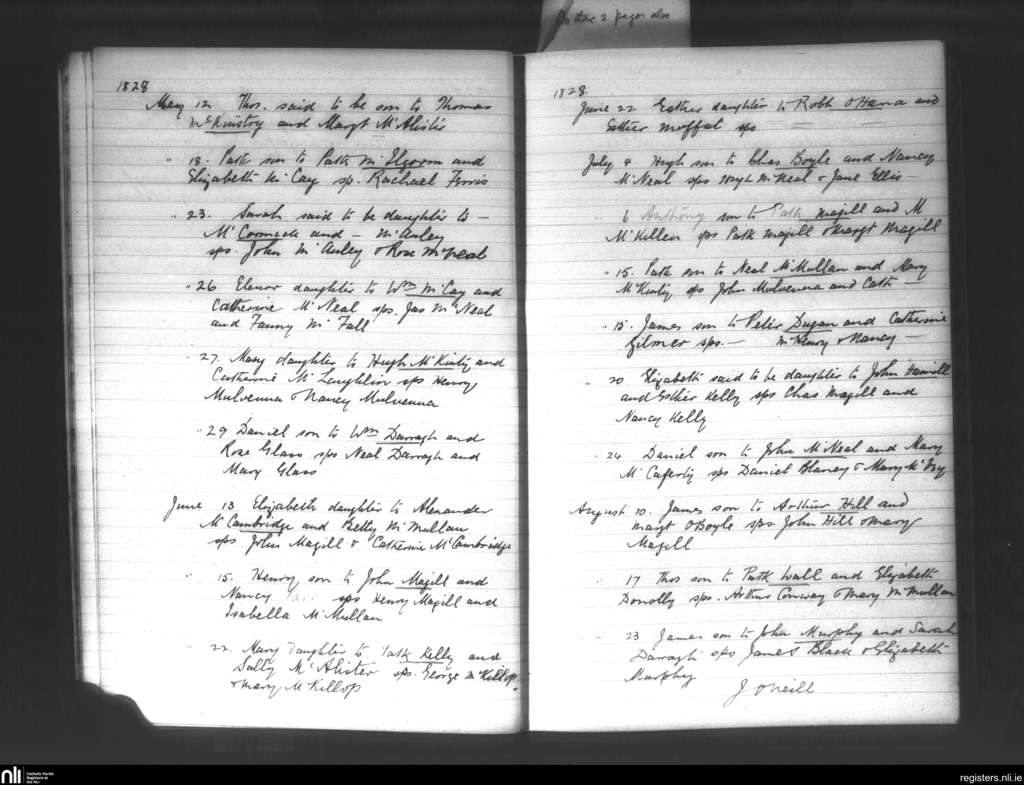 Do these 2 pages also
1828
May 12 Thos. said to be son to Thomas
McKinstry and Margt McAlister
" 18. Patk son to Patk McIlgorm and
Elizabeth McCay sp. Rachael Ferris
" 23. Sarah said to be daughter to –
McCormick and – McAuley
sps. John McAuley & Rose McNeal
" 26 Elenor daughter to Wm McCay and
Catherine McNeal sps. Jas McNeal
and Fanny McFall
" 27. Mary daughter to Hugh McKinty and
Catherine McLaughlin sps Henry
Mulvenna & Nancy Mulvenna
" 29 Daniel son to Wm Darragh and
Rose Glass sps Neal Darragh and
Mary Glass
June 13 Elizabeth daughter to Alexander
McCambridge and Betty McMullan
sps John Magill & Catherine McCambridge
" 15. Henry son to John Magill and
Nancy sps Henry Magill and
Isabella McMullan
" 22. Mary daughter to Patk Kelly and
Sally McAlister sps. George McKillop
& Mary McKillop
1828.
June 22 Esther daughter to Robt OHara and
Esther Moffat sps
July 4. Hugh son to Chas Boyle and Nancy
McNeal sps Hugh McNeal & Jane Ellis
" 6 Anthony son to Patk Magill and M
McKillen sps Patk Magill & Margt Magill
" 15. Patk son to Neal McMullan and Mary
McKinty sps John Mulvenna and Cath –
" 15. James son to Peter Dugan and Catherine
Gilmer sps. – McHenry & Nancy –
" 20 Elizabeth said to be daughter to John
and Esther Kelly sps Chas Magill and
Nancy Kelly
" 24 Daniel son to John McNeal and Mary
McCaferty sps Daniel Blaney & Mary
August 10. James son to Arthur Hill and
Margt OBoyle sps John Hill & Mary
Magill
" 17 Thos son to Patk Wall and Elizabeth
Donolly sps. Arthur Conway & Mary McMullan
" 23 James son to John Murphy and Sarah
Darragh sps James Black & Elizabeth
Murphy
J ONeill
nli Catholic Parish Registers at the NLI
registers.nli.ie